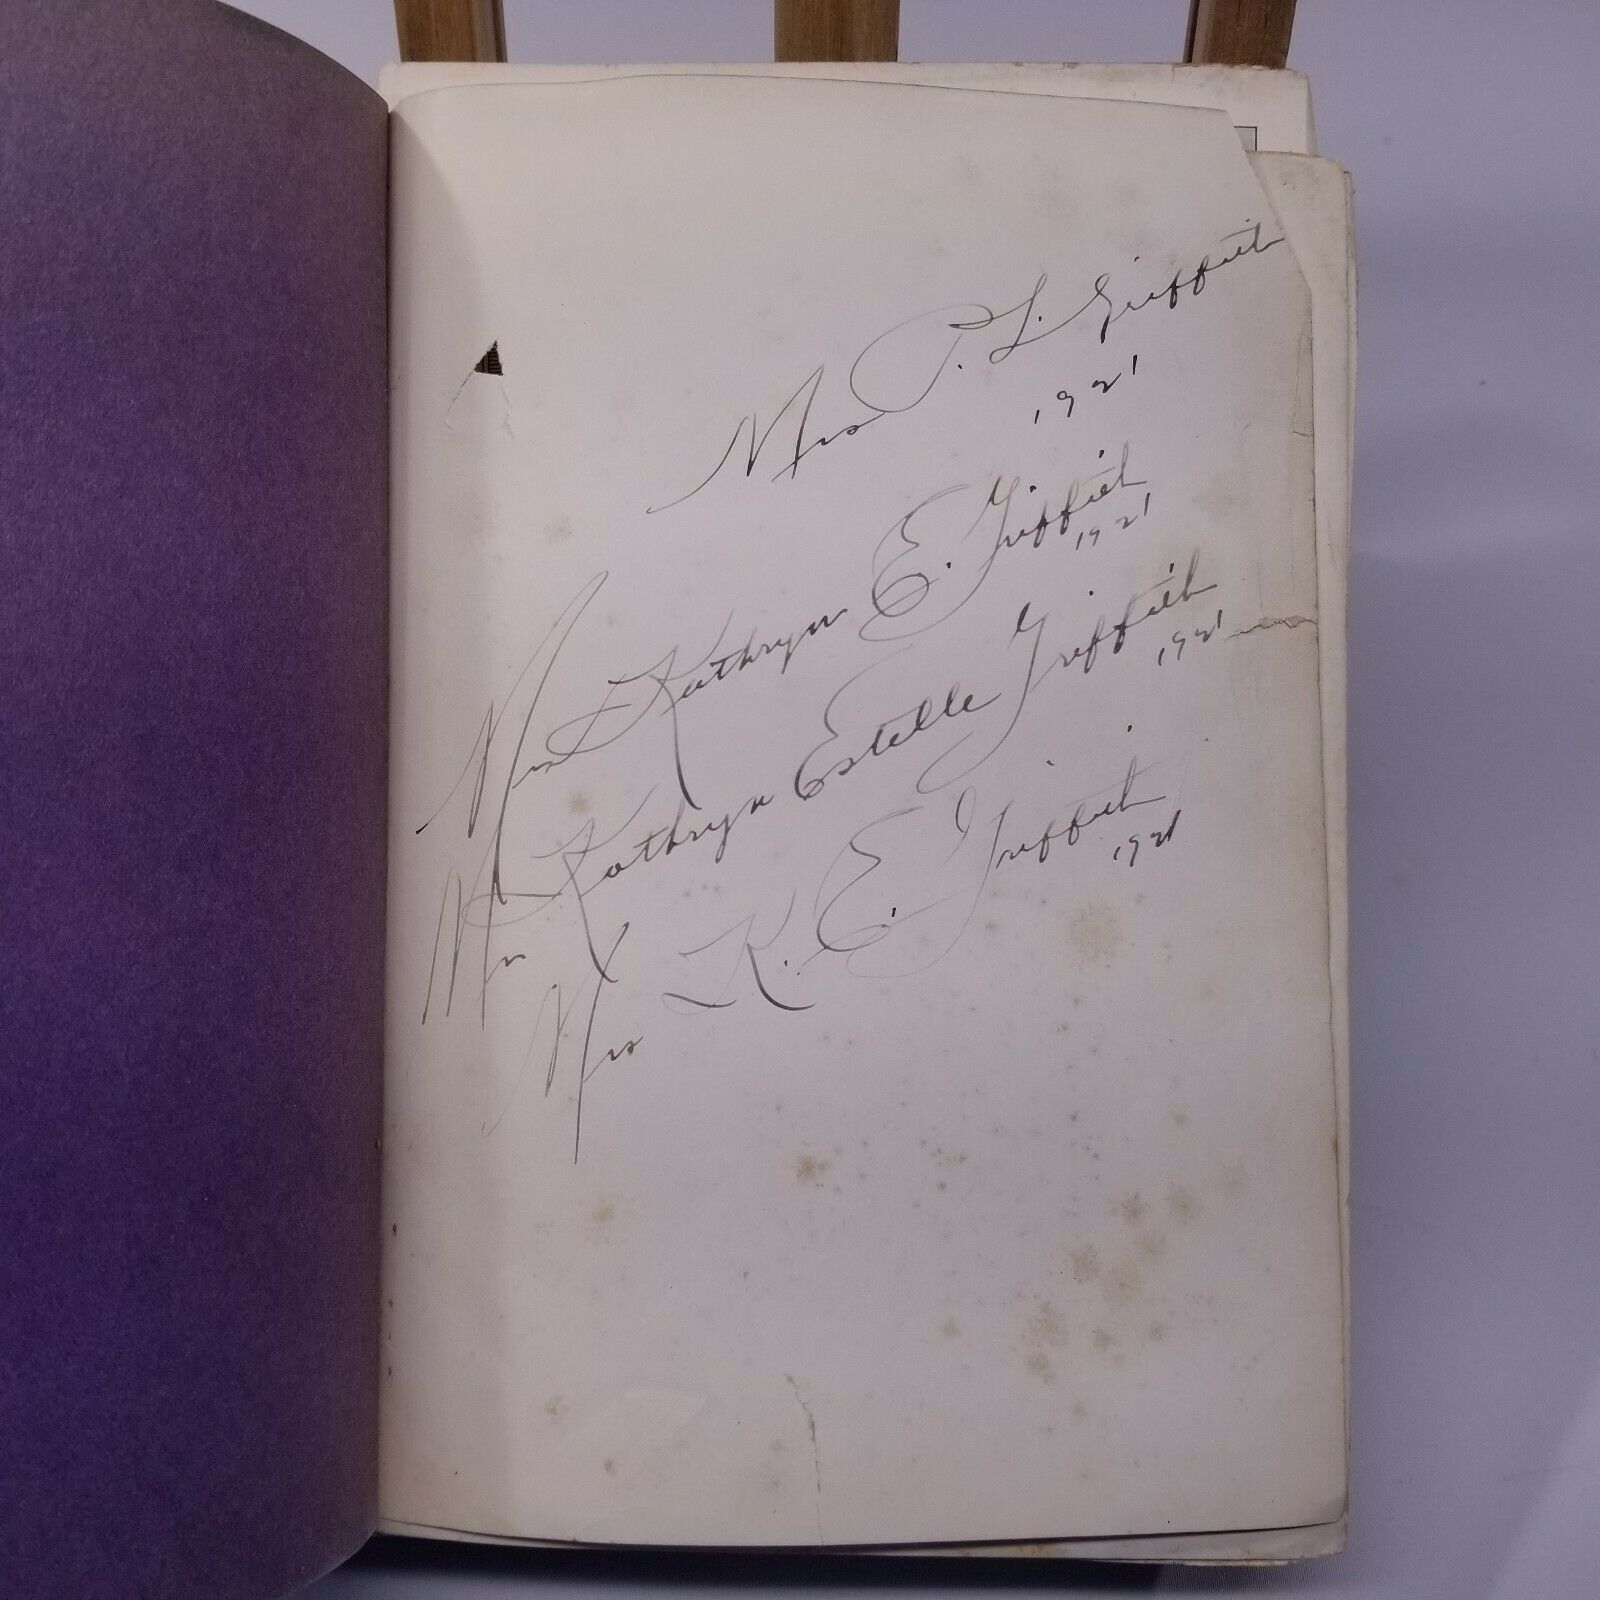 Mrs P. L. Griffith
1921
Mrs Kathryn E. Griffith
1921
Mrs Kathryn Estelle Griffith
1921
Mrs K. E. Griffith
1921